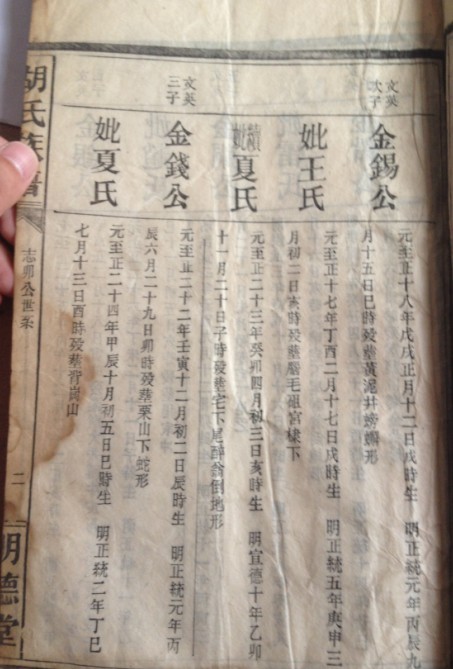 文英
次子
金錫公
元至正十八年戊戌正月十二日戌時生 明正統元年丙辰九
月十五日巳時歿葬黃泥井螃蠏形
妣王氏
元至正十七年丁酉二月十七日戌時生 明正統五年庚申三
月初二日亥時歿葬毛祖宮下
續妣夏氏
元至正二十三年癸卯四月初三日亥時生 明宣德十年乙卯
十一月二十日子時歿葬宅下尾醉翁倒地形
文英
三子
金錢公
元至正二十二年壬寅十二月初二日辰時生 明正統元年丙
辰六月二十九日卯時歿葬栗山下蛇形
妣夏氏
元至正二十四年甲辰十月初五日巳時生 明正統二年丁巳
七月十三日酉時歿葬背崗山
胡氏族譜
志邦公世系
二
明德堂